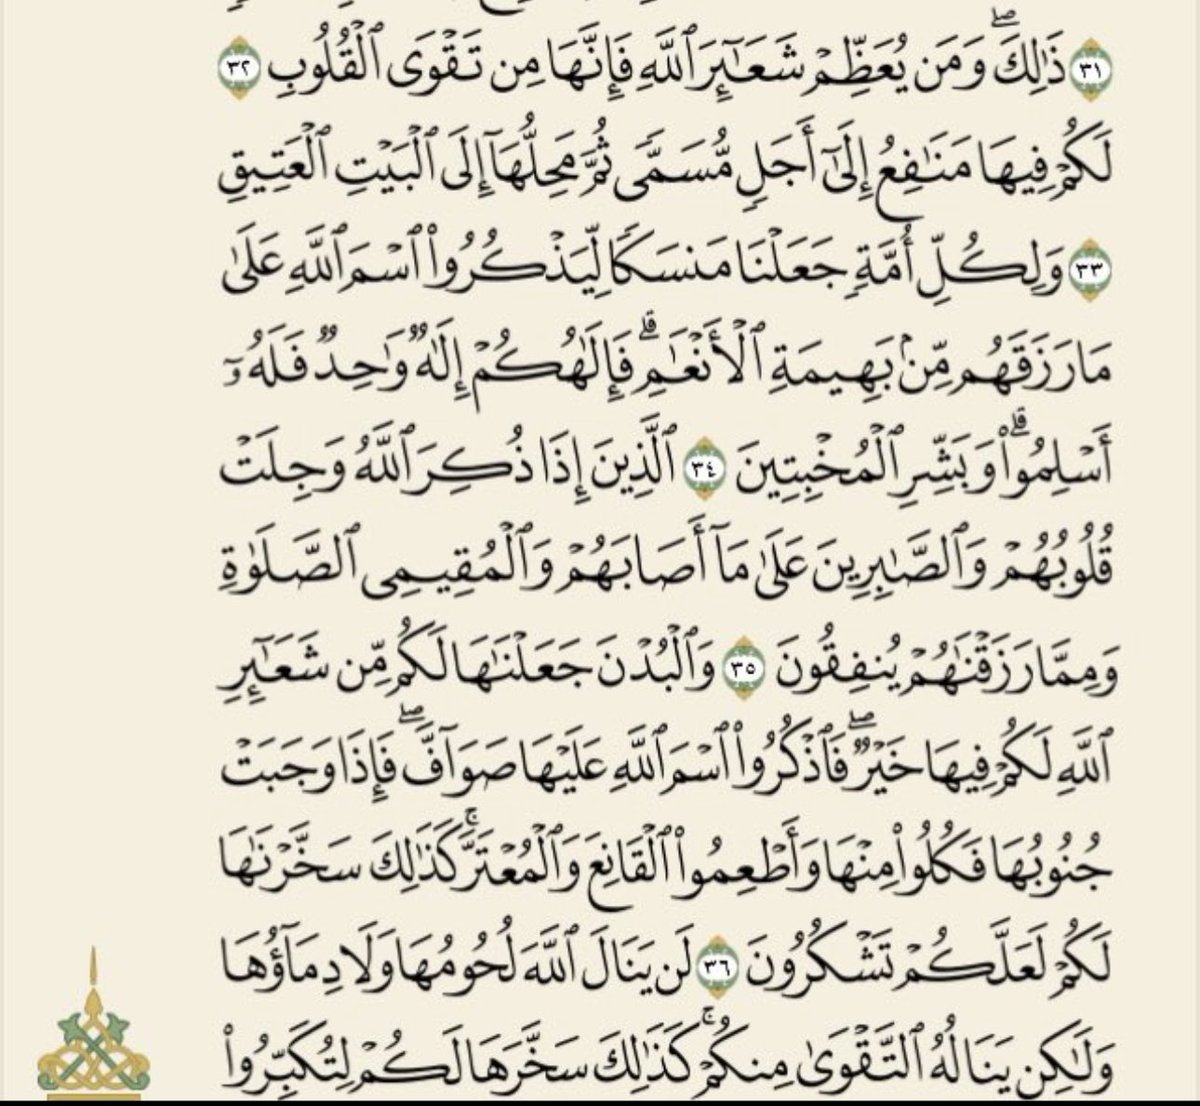 ٣١ ذَٰلِكَۖ وَمَن يُعَظِّمۡ شَعَـٰٓئِرَ ٱللَّهِ فَإِنَّهَا مِن تَقۡوَى ٱلۡقُلُوبِ ٣٢
لَكُمۡ فِيهَا مَنَـٰفِعُ إِلَىٰٓ أَجَلٖ مُّسَمّٗى ثُمَّ مَحِلُّهَآ إِلَى ٱلۡبَيۡتِ ٱلۡعَتِيقِ
٣٣ وَلِكُلِّ أُمَّةٖ جَعَلۡنَا مَنسَكٗا لِّيَذۡكُرُواْ ٱسۡمَ ٱللَّهِ عَلَىٰ
مَا رَزَقَهُم مِّنۢ بَهِيمَةِ ٱلۡأَنۡعَـٰمِۗ فَإِلَـٰهُكُمۡ إِلَـٰهٞ وَٰحِدٞ فَلَهُۥٓ
أَسۡلِمُواْۗ وَبَشِّرِ ٱلۡمُخۡبِتِينَ ٣٤ ٱلَّذِينَ إِذَا ذُكِرَ ٱللَّهُ وَجِلَتۡ
قُلُوبُهُمۡ وَٱلصَّـٰبِرِينَ عَلَىٰ مَآ أَصَابَهُمۡ وَٱلۡمُقِيمِي ٱلصَّلَوٰةِ
وَمِمَّا رَزَقۡنَـٰهُمۡ يُنفِقُونَ ٣٥ وَٱلۡبُدۡنَ جَعَلۡنَـٰهَا لَكُم مِّن شَعَـٰٓئِرِ
ٱللَّهِ لَكُمۡ فِيهَا خَيۡرٞۖ فَٱذۡكُرُواْ ٱسۡمَ ٱللَّهِ عَلَيۡهَا صَوَآفَّۖ فَإِذَا وَجَبَتۡ
جُنُوبُهَا فَكُلُواْ مِنۡهَا وَأَطۡعِمُواْ ٱلۡقَانِعَ وَٱلۡمُعۡتَرَّۚ كَذَٰلِكَ سَخَّرۡنَـٰهَا
لَكُمۡ لَعَلَّكُمۡ تَشۡكُرُونَ ٣٦ لَن يَنَالَ ٱللَّهَ لُحُومُهَا وَلَا دِمَآؤُهَا
وَلَـٰكِن يَنَالُهُ ٱلتَّقۡوَىٰ مِنكُمۡۚ كَذَٰلِكَ سَخَّرَهَا لَكُمۡ لِتُكَبِّرُواْ